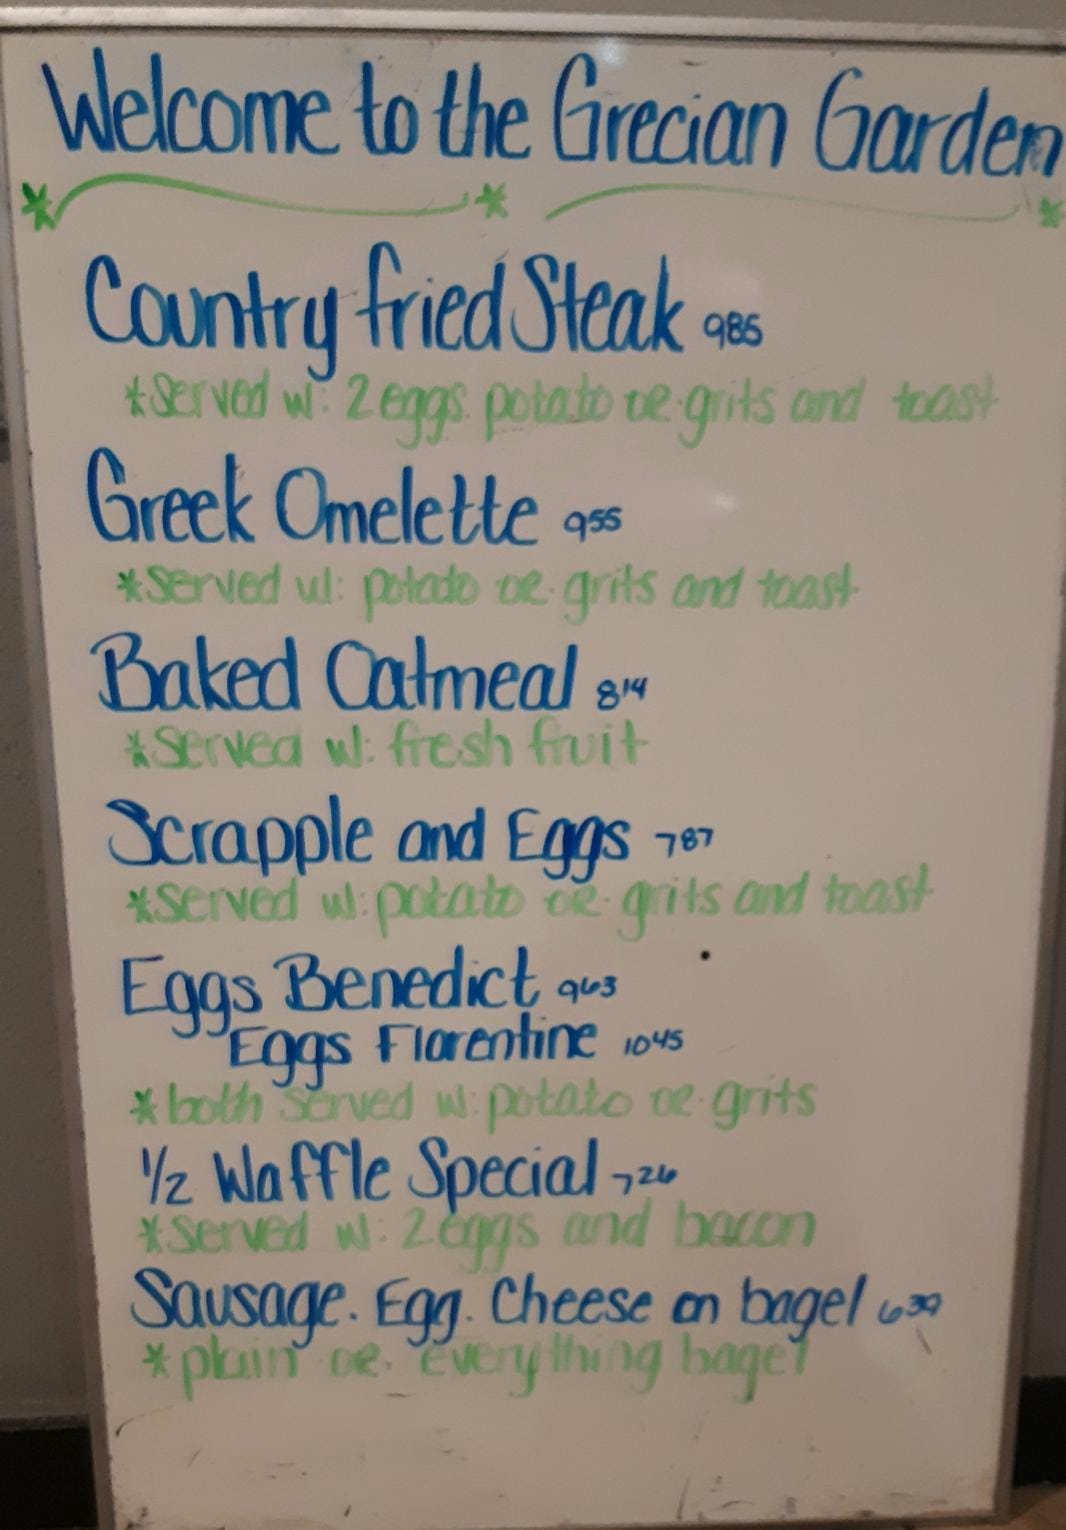 Welcome to the Grecian Garden
Country fried Steak 985
*Served w/: 2 eggs. potato or grits and toast
Greek Omelette 955
*Served w/: potato or grits and toast
Baked Oatmeal 814
*Served w/: fresh fruit
Scrapple and Eggs 787
*Served w/: potato or grits and toast
Eggs Benedict 963
Eggs Florentine 1045
*both served w/: potato or grits
1/2 Waffle Special 726
*Served w/: 2 eggs and bacon
Sausage. Egg. Cheese on bagel 639
*plain or everything bagel